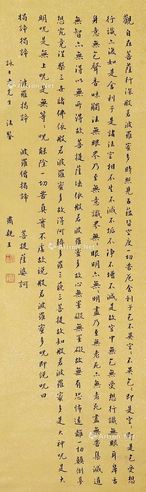 觀自在菩薩行深般若波羅蜜多時照見五蘊皆空度一切苦厄舍利子色不異空、不異色、即是空、即是色受想
行識亦復如是舍利子是諸法空相不生不滅不垢不淨不增不減是故空中無色無受想行識無眼耳鼻舌
身意無色聲香味觸法無眼界乃至無意識界無無明亦無無明盡乃至無老死亦無老死盡無苦集滅道
無智亦無得以無所得故菩提薩埵依般若波羅蜜多故心無罣礙無罣礙故無有恐怖遠離一切顛倒夢
想究竟涅槃三世諸佛依般若波羅蜜多故得阿耨多羅三藐三菩提故知般若波羅蜜多是大神呪是大
明呪是無上呪是無等等呪能除一切苦真實不虛故說般若波羅蜜多呪即說呪曰
揭諦揭諦 波羅揭諦 波羅僧揭諦 菩提薩婆訶
先生 法鑒 肅親王